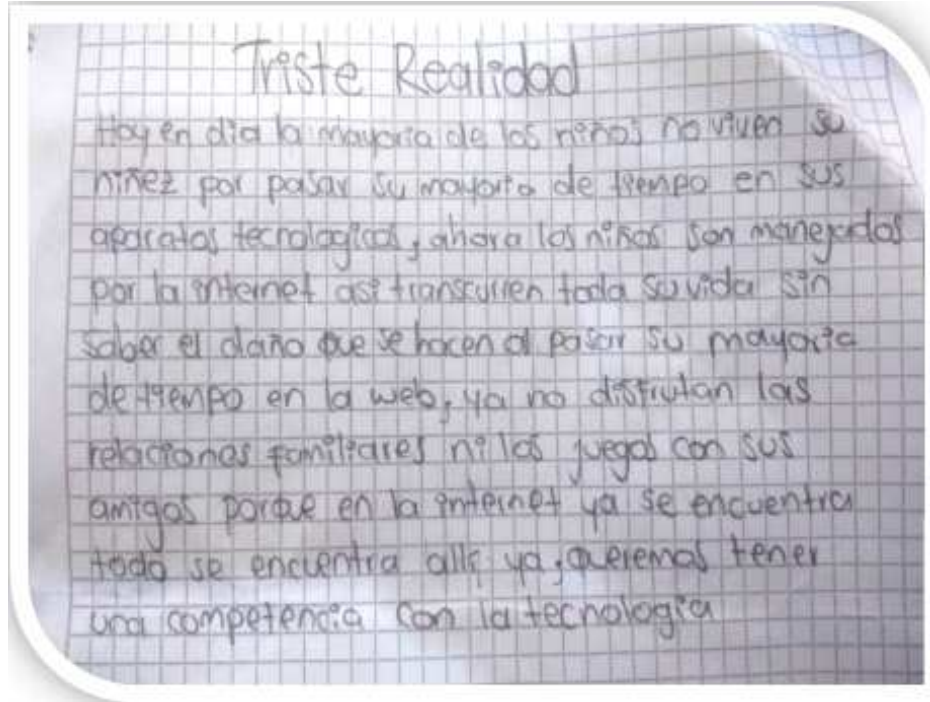 Triste Realidad
Hoy en dia la mayoria de los niños no viven su
niñez por pasar su mayoria de tiempo en sus
aparatos tecnologicos, ahora los niños son manejados
por la internet asi transcurren toda su vida sin
saber el daño que se hacen al pasar su mayoria
de tiempo en la web, ya no disfrutan las
relaciones familiares ni los juegos con sus
amigos porque en la internet ya se encuentra
todo se encuentra alli ya, queremos tener
una competencia con la tecnologia